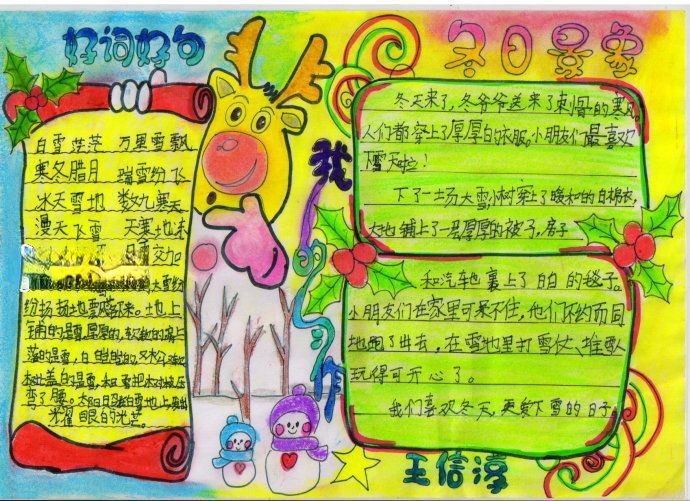 好词好句
白雪茫茫 万里雪飘
寒冬腊月 瑞雪纷飞
冰天雪地 数九寒天
漫天飞雪 天寒地冻
交加
大雪纷
纷扬扬地雪飘下来。地上
铺的是雪,厚厚的,软软的,房上
落的是雪,白皑皑的,
盖的是雪,
弯了腰。
光耀眼的光芒。
我的习作
冬日景象
冬天来了,冬爷爷送来了刺骨的寒风,
人们都穿上了厚厚的衣服。小朋友们最喜欢
下雪天啦!
下了一场大雪,小树穿上了暖和的白棉衣,
大地铺上了一层厚厚的被子,房子
和汽车也裹上了白白的毯子。
小朋友们在家里可呆不住,他们不约而同
地跑了出去,在雪地里打雪仗、堆雪人
玩得可开心了。
我们喜欢冬天,更爱下雪的日子。
王信淳